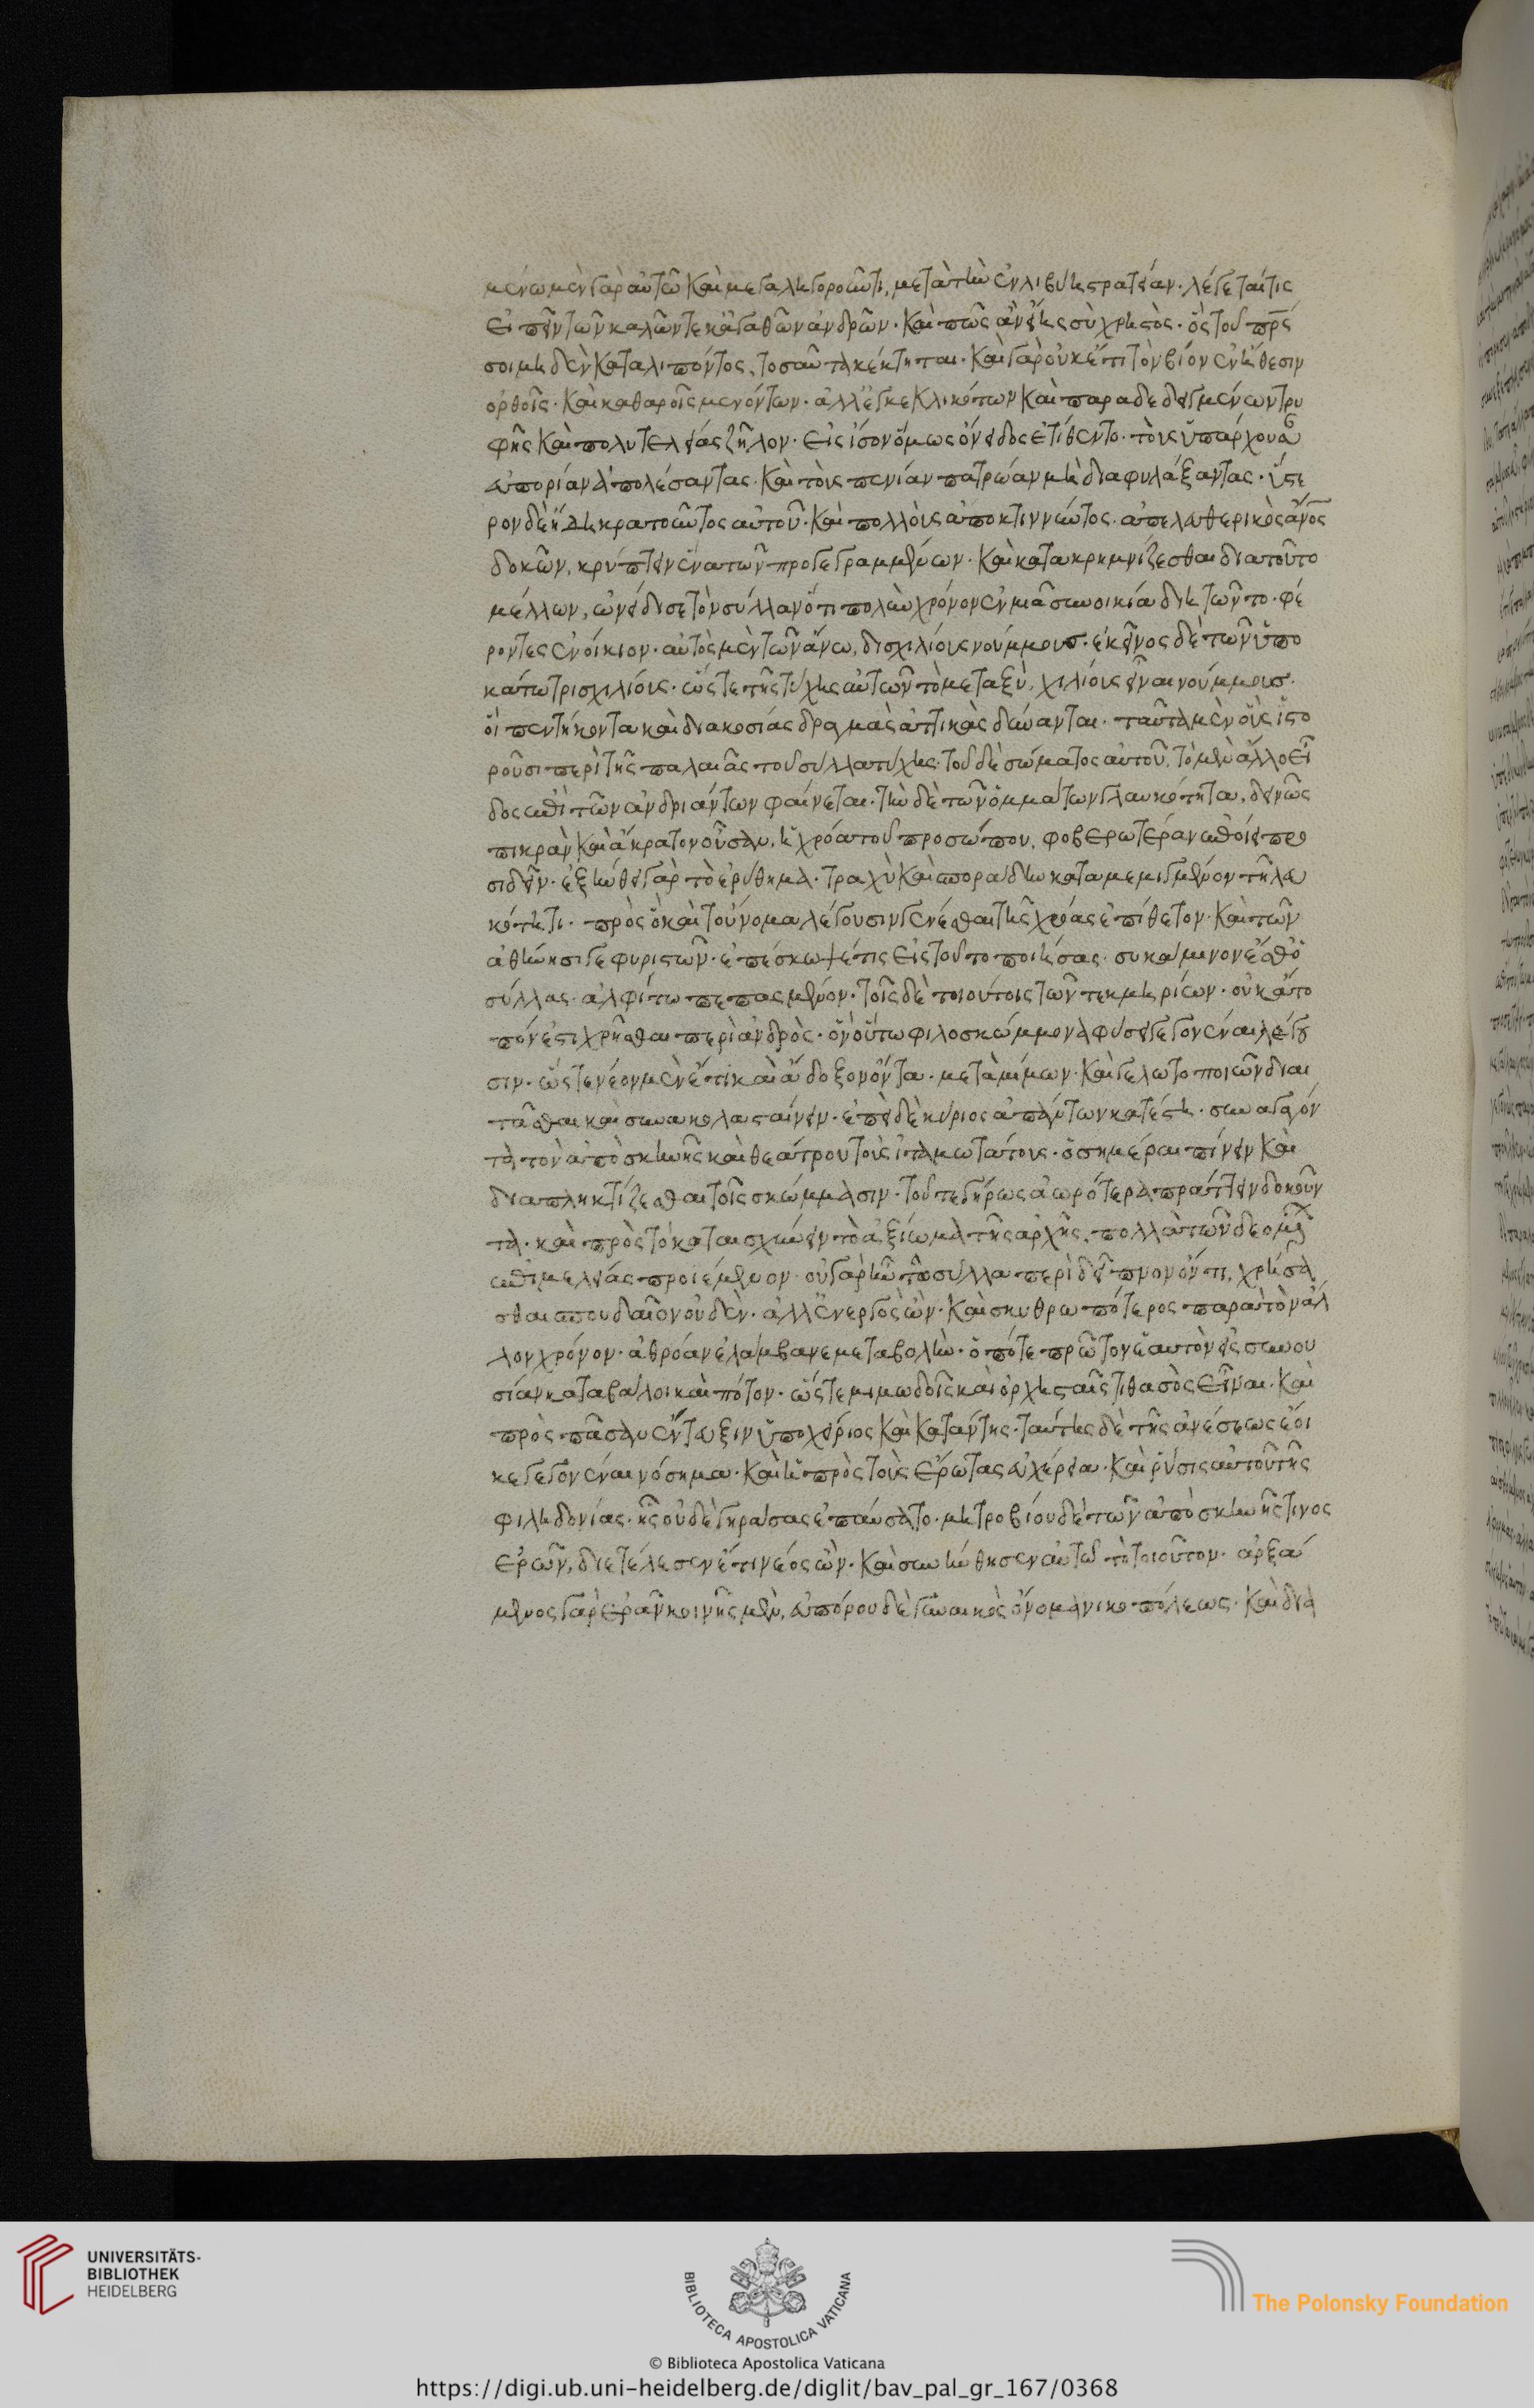 μένω μὲν γὰρ αὐτῶ καὶ μεγαληγοροῦντι, μετὰ τὴν ἐν λιβύη στρατείαν· λέγεταί τις
εἰπεῖν τῶν καλῶν τε κἀγαθῶν ἀνδρῶν· καὶ πῶς ἂν εἴης σὺ χρηστὸς· ὃς τοῦ πρς
σοι μηδὲν καταλιπόντος, τοσαῦτα κέκτηται· καὶ γὰρ οὐκέτι τὸν βίον ἐν ἤθεσιν
ὀρθοῖς· καὶ καθαροῖς μενόντων· ἀλλ' ἐγκεκλικότων καὶ παραδεδεγμένων τρυ
φῆς καὶ πολυτελείας ζῆλον· εἰς ἴσον ὅμως ὄνειδος ἐτίθεντο· τοὺς ὑπάρχουσ
εὐπορίαν ἀπολέσαντας· καὶ τοὺς πενίαν πατρώαν μὴ διαφυλάξαντας· ὕστε
ρον δὲ ἤδη κρατοῦντος αὐτοῦ· καὶ πολλοὺς ἀποκτιννύντος· ἀπελευθερικὸς ἄνος
δοκῶν, κρύπτειν ἕνα τῶν προγεγραμμένων· καὶ κατακρημνίζεσθαι διατοῦτο
μέλλων, ὠνείδισε τὸν σύλλαν ὅτι πολὺν χρόνον ἐν μιᾶ συνοικία διητῶντο· φέ
ροντες ἐνοίκιον· αὐτὸς μὲν τῶν ἄνω, δισχιλίους νούμμους· ἐκεῖνος δὲ τῶν ὑπο
κάτω τρισχιλίους· ὥστε τῆς τύχης αὐτῶν τὸ μεταξὺ, χιλίους εἶναι νούμμους·
οἳ πεντήκοντα καὶ διακοσίας δραχμὰς ἀττικὰς δύνανται· ταῦτα μὲν οὖν ἱστο
ροῦσι περὶ τῆς παλαιᾶς τοῦ σύλλα τύχης· τοῦ δὲ σώματος αὐτοῦ, τὸ μὲν ἄλλο εἶ
δος ἐπὶ τῶν ἀνδριάντων φαίνεται· τὴν δὲ τῶν ὀμμάτων γλαυκότητα, δεινῶς
πικρὰν καὶ ἄκρατον οὖσαν, ἡ χρόα τοῦ προσώπου, φοβερωτέραν ἐποίει προ
σιδεῖν· ἐξήνθει γὰρ τὸ ἐρύθημα· τραχὺ καὶ σποράδην καταμεμιγμένον τῆ λευ
κότητι· πρὸς ὃ καὶ τοὔνομα λέγουσιν γενέσθαι τῆς χρόας ἐπίθετον· καὶ τῶν
ἀθήνησι γεφυριστῶν· ἐπέσκωψέ τις εἰς τοῦτο ποιήσας· συκάμινον ἔσθ' ὁ
σύλλας· ἀλφίτω πεπασμένον· τοῖς δὲ τοιούτοις τῶν τεκμηρίων· οὐκ ἄτο
πόν ἐστι χρῆσθαι περὶ ἀνδρὸς· ὃν οὕτω φιλοσκώμμονα φύσει γεγονέναι λέγου
σιν· ὥστε νέον μὲν ἔτι καὶ ἄδοξον ὄντα· μετὰ μίμων· καὶ γελωτοποιῶν διαι
τᾶσθαι καὶ συνακολασταίνειν· ἐπεὶ δὲ κύριος ἁπάντων κατέστη· συναγαγόν
τα τὸν ἀπὸ σκηνῆς καὶ θεάτρου τοὺς ἰταμωτάτους· ὁσημέραι πίνειν καὶ
διαπληκτίζεσθαι τοῖς σκώμμασιν· τοῦ τε γήρως ἀωρότερα πράττειν δοκοῦν
τα· καὶ πρὸς τὸ καταισχύνειν τὸ ἀξίωμα τῆς ἀρχῆς, πολλὰ τῶν δεομέν
ἐπιμελείας προϊέμενον· οὐ γὰρ ἦν τῶ σύλλα περὶ δεῖπνον ὄντι, χρήσα
σθαι σπουδαῖον οὐδὲν· ἀλλ' ἐνεργὸς ὢν· καὶ σκυθρωπότερος παρα τὸν ἄλ
λον χρόνον· ἀθρόαν ἐλάμβανε μεταβολὴν· ὁπότε πρῶτον ἑαυτὸν εἰς συνου
σίαν καταβάλοι καὶ πότον· ὥστε μιμωδοῖς καὶ ὀρχησταῖς τιθασὸς εἶναι· καὶ
πρὸς πᾶσαν ἔντευξιν ὑποχείριος καὶ κατάντης· ταύτης δὲ τῆς ἀνέσεως ἔοι
κε γεγονέναι νόσημα· καὶ ἡ πρὸς τοὺς ἔρωτας εὐχέρεια· καὶ ῥύσις αὐτοῦ τῆς
φιληδονίας· ἧς οὐδὲ γηράσας ἐπαύσατο· μητροβίου δὲ τῶν ἀπὸ σκηνῆς τινος
ἐρῶν, διετέλεσεν ἔτι νέος ὢν· καὶ συνήνθησεν αὐτῶ τὸ τοιοῦτον· ἀρξά
μενος γὰρ ἐρᾶν κοινῆς μὲν, εὐπόρου δὲ γυναικὸς ὄνομα νικοπόλεως· καὶ δια
UNIVERSITÄTS-
BIBLIOTHEK
HEIDELBERG
BIBLIOTECA APOSTOLICA VATICANA
© Biblioteca Apostolica Vaticana
The Polonsky Foundation
https://digi.ub.uni-heidelberg.de/diglit/bav_pal_gr_167/0368